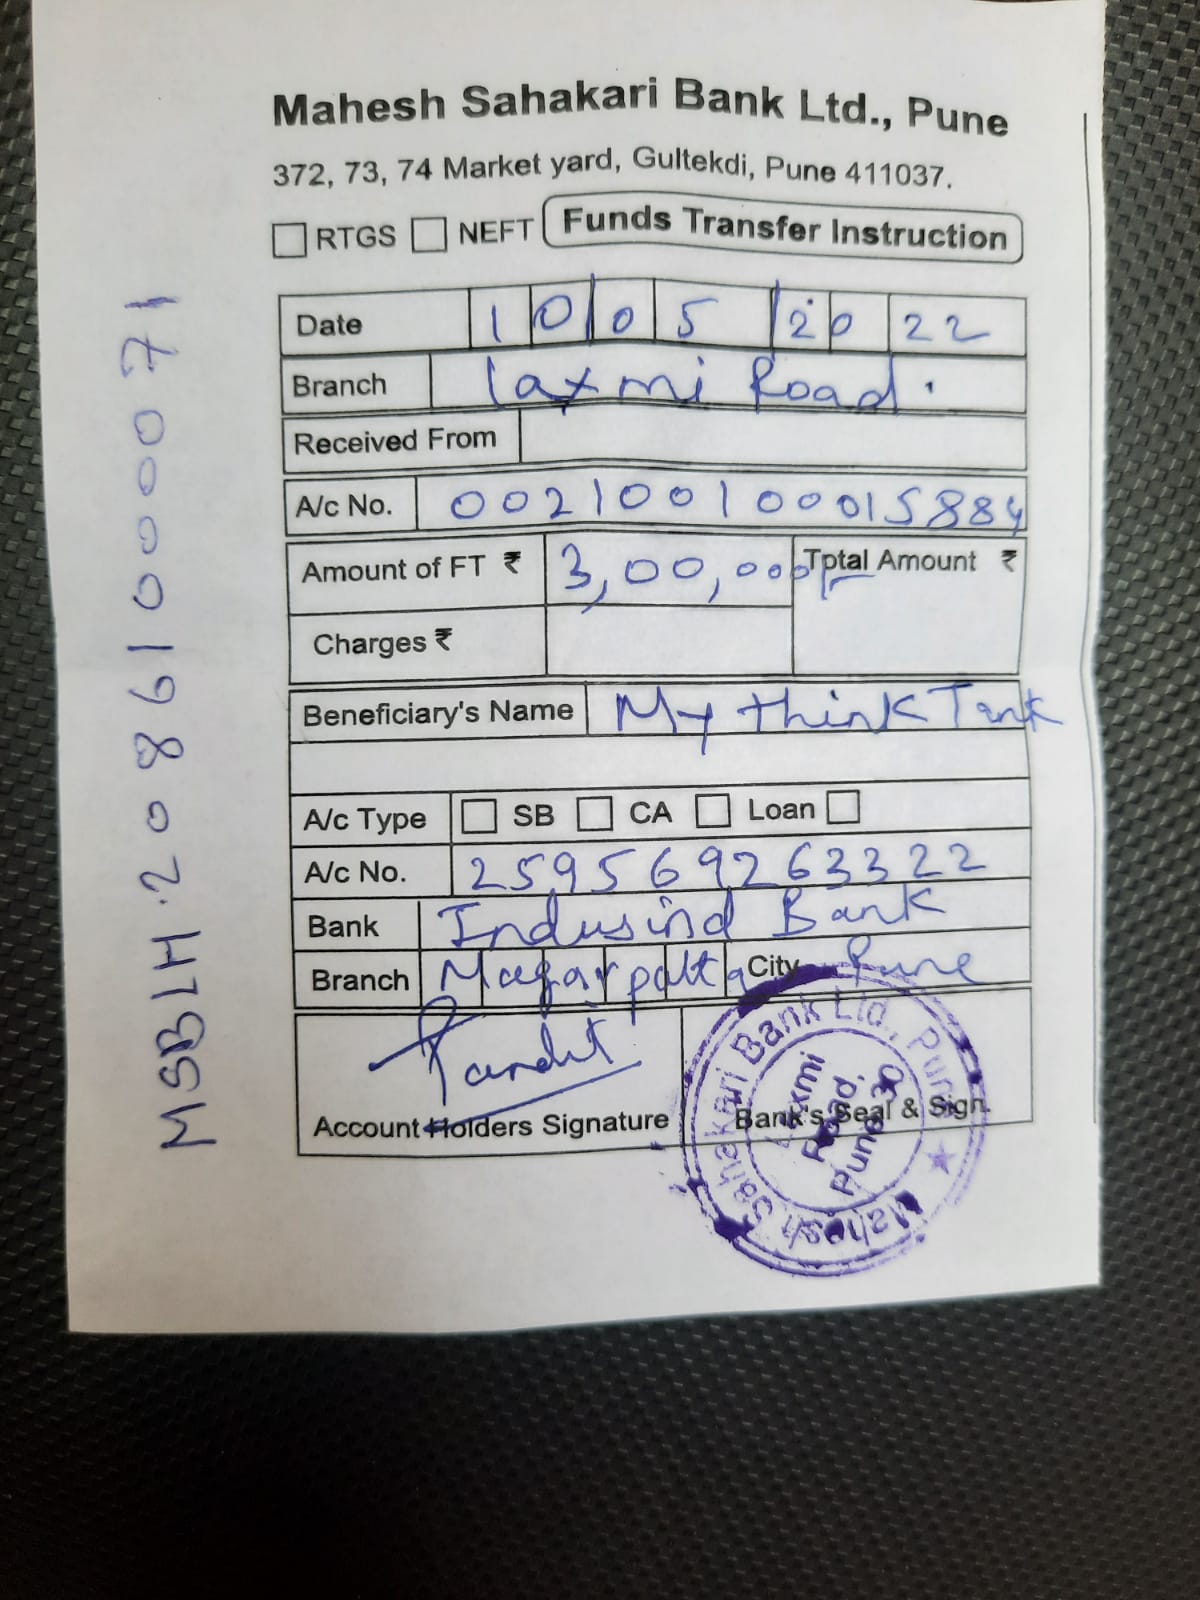 Mahesh Sahakari Bank Ltd., Pune
372, 73, 74 Market yard, Gultekdi, Pune 411037.
RTGS NEFT Funds Transfer Instruction
Date 10/05/2022
Branch Laxmi Road.
Received From
A/c No. 0021001000015884
Amount of FT ₹ 3,00,000/- Total Amount ₹
Charges ₹
Beneficiary's Name My think Tank
A/c Type SB CA Loan
A/c No. 259569263322
Bank Indusind Bank
Branch Magarpatta City Pune
Pandit
Account Holders Signature Bank's Seal & Sign.
Mahesh Sahakari Bank Ltd., Pune
Laxmi
Road,
Pune 30
MSBLH.20861000071